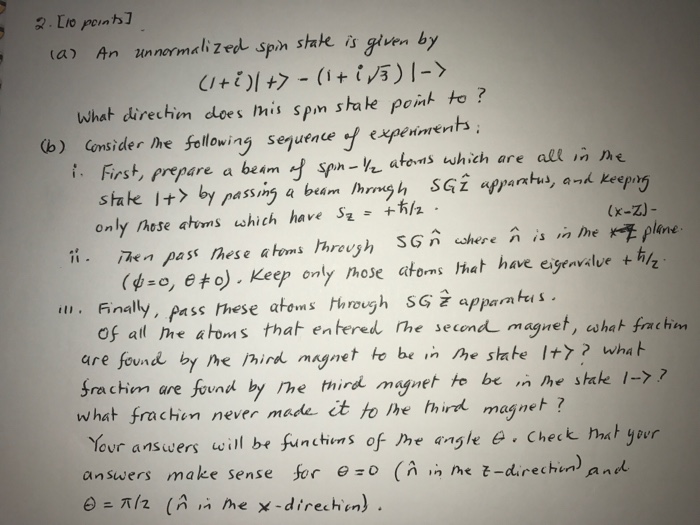 2. [10 points]
(a) An unnormalized spin state is given by
(1+i)|+> - (1+i√3)|->
What direction does this spin state point to?
(b) Consider the following sequence of experiments:
i. First, prepare a beam of spin-1/2 atoms which are all in the
state |+> by passing a beam through SGẑ apparatus, and keeping
only those atoms which have Sz = +ħ/2.
(x-z)-
ii. Then pass these atoms through SG n̂ where n̂ is in the plane.
(ϕ=0, θ≠0). Keep only those atoms that have eigenvalue +ħ/2.
iii. Finally, pass these atoms through SG ẑ apparatus.
Of all the atoms that entered the second magnet, what fraction
are found by the third magnet to be in the state |+>? What
fraction are found by the third magnet to be in the state |->?
What fraction never made it to the third magnet?
Your answers will be functions of the angle θ. Check that your
answers make sense for θ=0 (n̂ in the z-direction) and
θ = π/2 (n̂ in the x-direction).